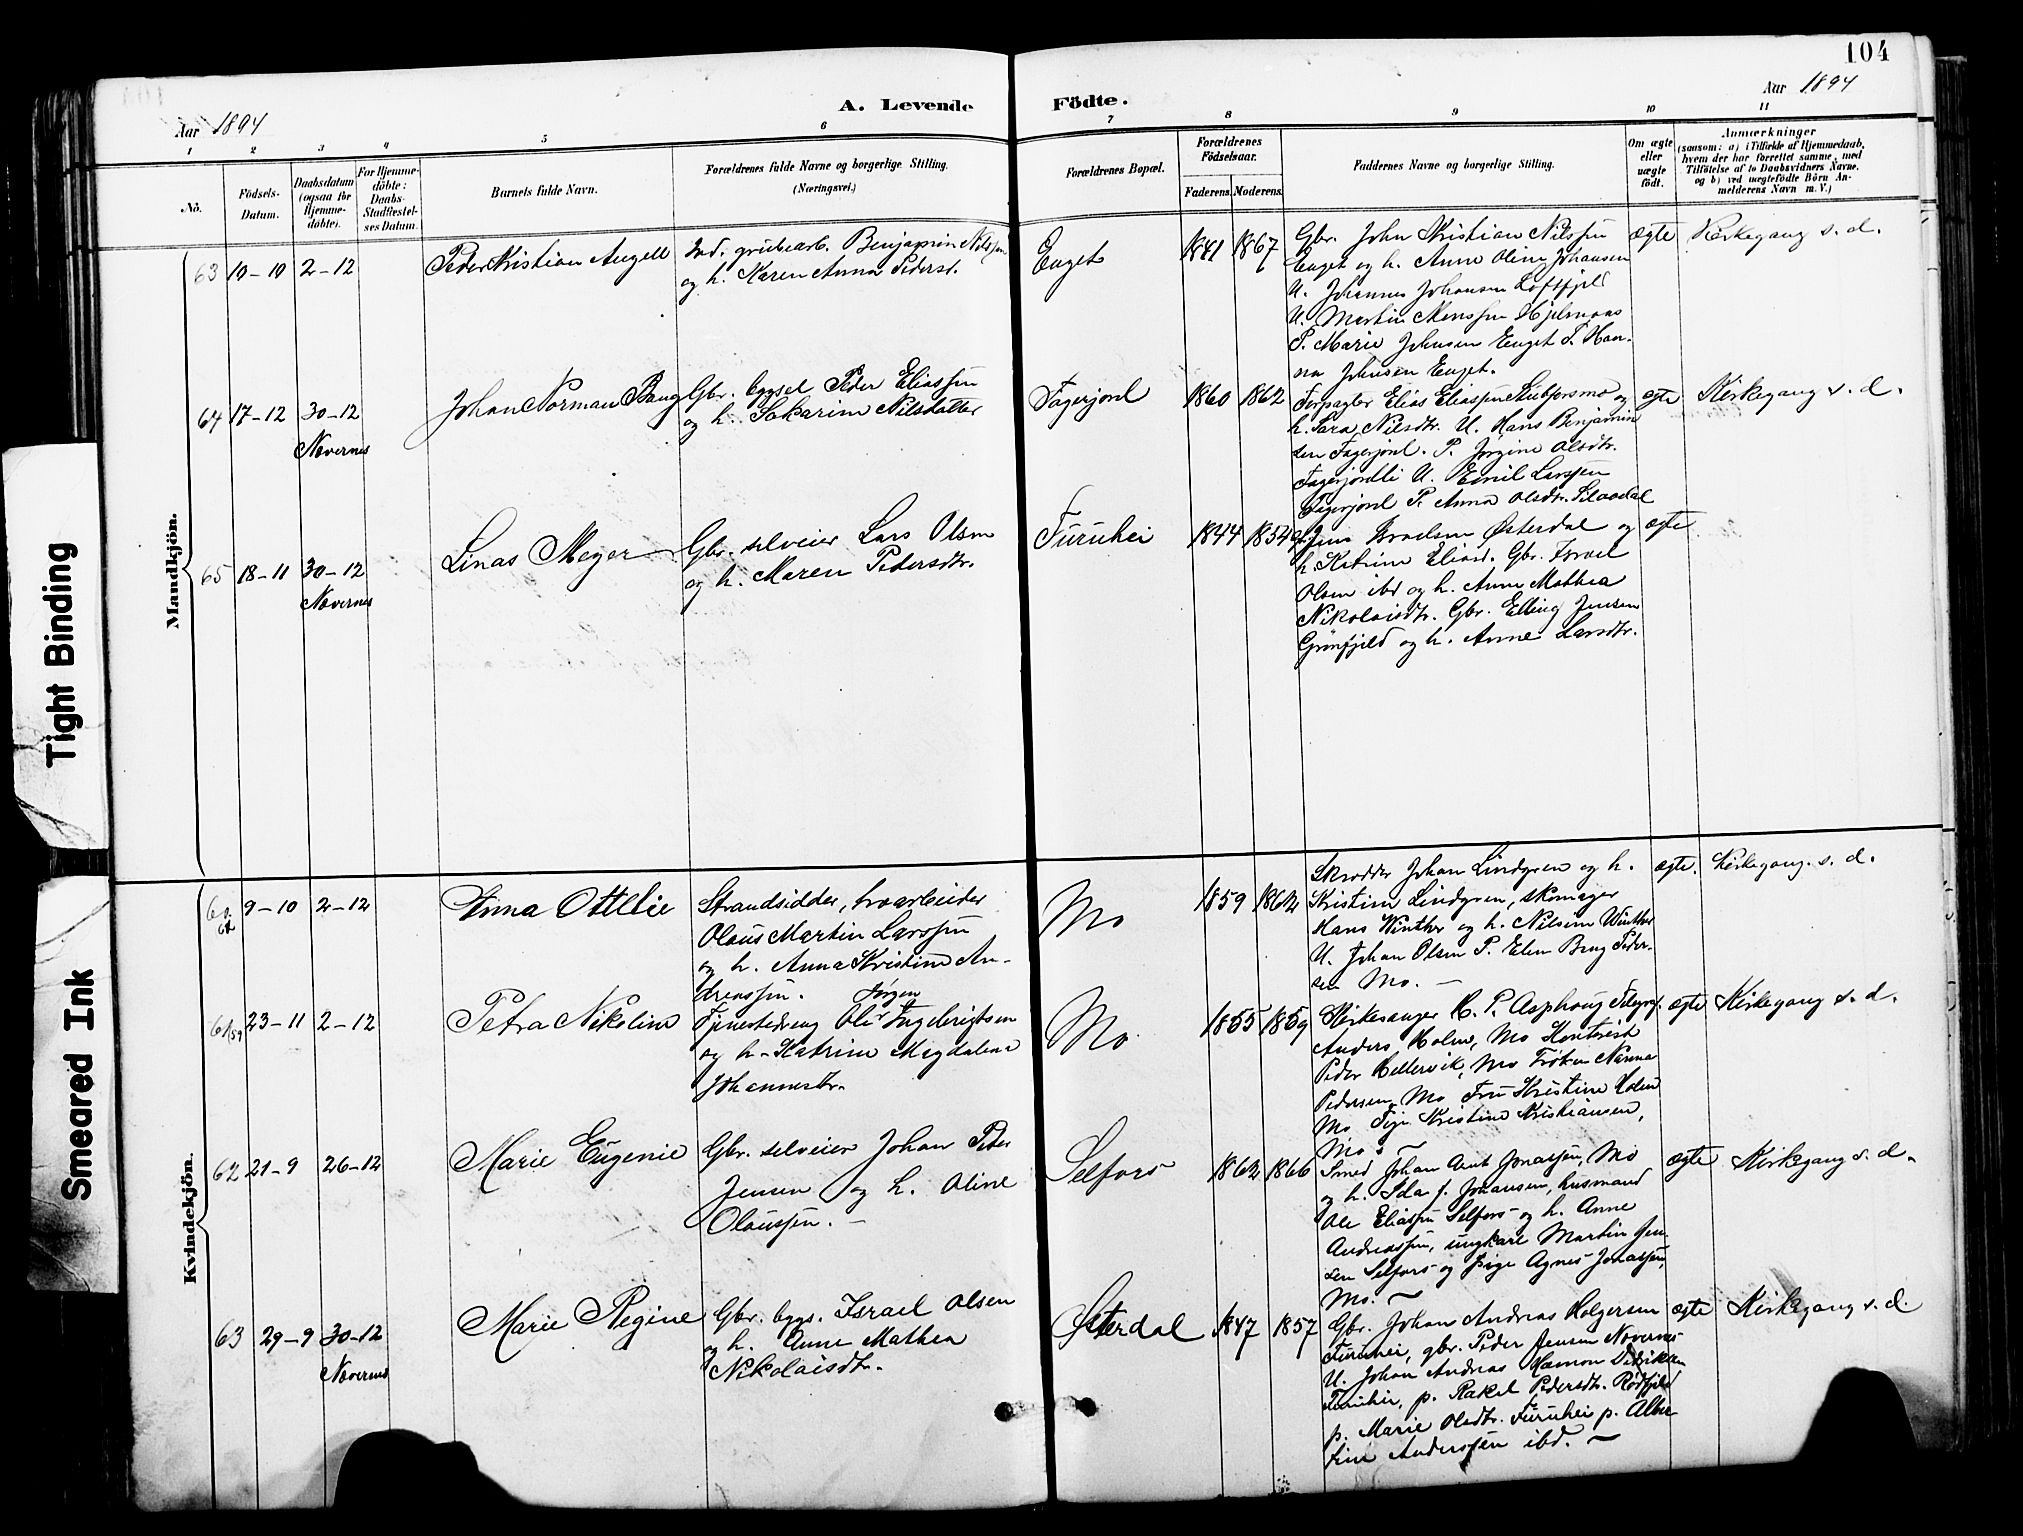 104
Aar 1894
A. Levende Födte.
Aar 1894
1 2 3 4 5 6 7 8 9 10 11
No.
Födsels-
Datum.
Daabsdatum
(ogsaa for
Hjemme-
döbte).
For Hjemme-
döbte:
Daabs-
Stadfæstel-
ses Datum.
Barnets fulde Navn.
Forældrenes fulde Navne og borgerlige Stilling.
(Næringsvei.)
Forældrenes Bopæl.
Forældrenes
Födselsaar.
Faderens. Moderens.
Faddernes Navne og borgerlige Stilling.
Om ægte
eller
uægte
født.
Anmærkninger
(saasom: a) i Tilfælde af Hjemmedaab,
hvem der har forrettet samme, med
Tilföielse af to Daabsvidners Navne,
og b) ved uægtefödte Börn An-
melderens Navn m. V.)
Mandkjön.
63 10-10 2-12
Peder Kristian Angell
Ind. grubearb. Benjamin Nilssen
og h. Karen Anna Pedersd.
Enget
1841 1867
Gbr. John Kristian Nilssen
Enget og h. Anne Oline Johansen
U. Johannes Johansen Loftfjeld
U. Martin Monssen Hjelmaas
P. Marie Johnsen Enget P. Han-
na Johnsen Enget.
ægte
Kirkegang s. d.
64 17-12 30-12
Nævernes
Johan Norman Bang
Gbr. bygsel Peder Eliassen
og h. Sakarine Nilsdatter
Fagerjord
1860 1862
Forpagter Elias Eliassen Stubjorsmo og
h. Sara Nilsdtr. U. Hans Benjamin
sen Fagerjord. P. Jørgine Olsdtr.
Fagerjordli U. Emil Larssen
Fagerjord P. Anna Olsdtr. Plurdal
ægte
Kirkegang s. d.
65 18-11 30-12
Nævernes
Linas Meyer
Gbr. selveier Lars Olsen
og h. Maren Pedersdtr.
Furuhei
1844 1854
Jens Israelsen Østerdal og
h. Katrine Eliasd. Gbr. Israel
Olsen ibd og h. Anne Mathea
Nikolaisdtr. Gbr. Elling Jensen
Grønfjeld og h. Anne Larsdtr.
ægte
Kvindekjön.
60 9-10 2-12
Anna Ottelie
Strandsidder, tvarbeider
Olaus Martin Larssen
og h. Anna Kristine An-
dreassen.
Mo
1859 1862
Skrædder Johan Lindgren og h.
Kristine Lindgren, skomager
Hans Winther og h. Nilsine Winther
U. Johan Olsen P. Elen Brug Peder-
sen Mo. —
ægte.
Kirkegang. s. d.
61 23-11 2-12
Petra Nikoline
Jørgen
Tjenestedreng Ole Ingebrigtsen
og h. Katrine Magdalena
Johannesdtr.
Mo
1855 1859
Kirkesanger H. P. Asphaug Telegraf.
Anders Holm, Mo Kontorist
Peder Hellervik, Mo Frøken Nanna
Pedersen Mo Fru Kristine Holm
Mo Pige Kristine Kristiansen,
Mo. ~
ægte
Kirkegang s. d.
62 21-9 26-12
Marie Eugenie
Gbr. selveier Johan Peder
Jensen og h. Oline
Olaussen. —
Selfors
1862 1866
Smed Johan Arnt Jonassen, Mo
og h. Ida f. Johansen, husmand
Ole Eliassen Selfors og h. Anne
Andreassen, ungkarl Martin Jen
sen Selfors og pige Agnes Jonassen,
Mo. ~
ægte
Kirkegang s. d.
63 29-9 30-12
Nævernes
Marie Regine
Gbr. bygs. Israel Olsen
og h. Anne Mathea
Nikolaisdtr.
Østerdal
1847 1857
Gbr. Johan Andreas Holgersen
Furuhei, gbr. Peder Jensen Nævernes
U. Johan Andreas Hæmon Didriksen
Furuhei, p. Rakel Pedersdtr. Rødfjeld
p. Marie Olsdtr. Furuhei p. Alber
tine Anderssen ibd. ~
ægte
Kirkegang s. d.
Tight Binding
Smeared Ink